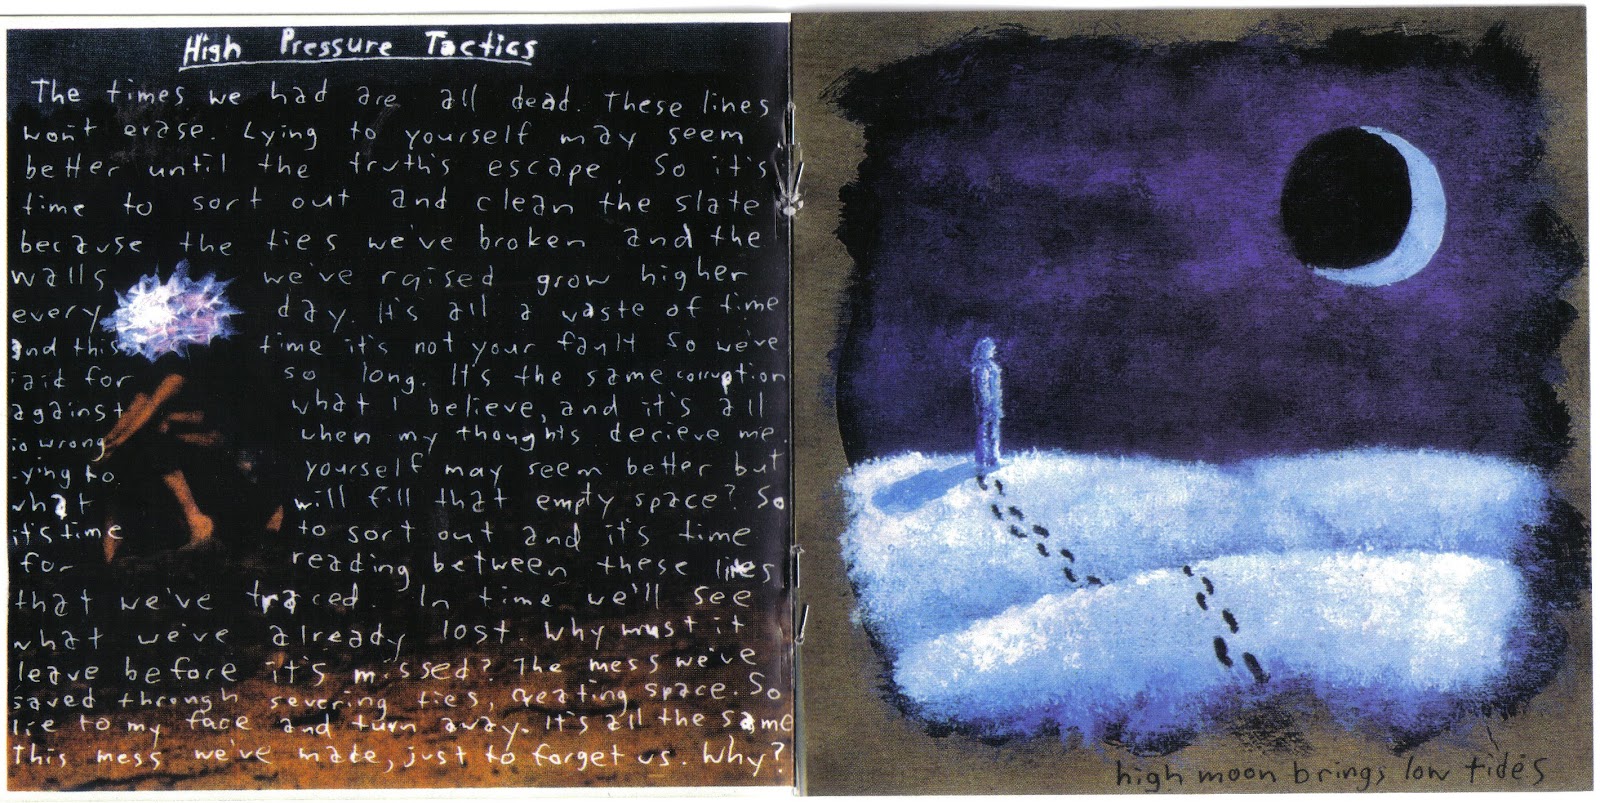 High Pressure Tactics
The times we had are all dead. These lines
won't erase. Lying to yourself may seem
better until the truth's escape. So it's
time to sort out and clean the slate
because the ties we've broken and the
walls we've raised grow higher
every day. It's all a waste of time
and this time it's not your fault so we've
said for so long. It's the same corruption
against what I believe, and it's all
so wrong when my thoughts decieve me.
Lying to yourself may seem better but
what will fill that empty space? So
it's time to sort out and it's time
for reading between these lines
that we've traced. In time we'll see
what we've already lost. Why must it
leave before it's missed? The mess we've
saved through severing ties, creating space. So
lie to my face and turn away. It's all the same
This mess we've made, just to forget us. Why?
high moon brings low tides